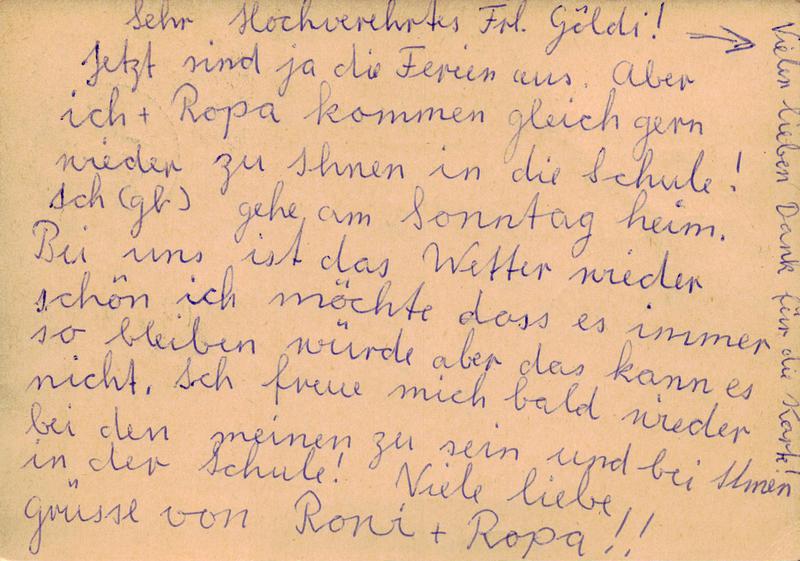 Sehr Hochverehrtes Frl. Göldi!
Jetzt sind ja die Ferien aus. Aber
ich + Ropa kommen gleich gern
wieder zu Ihnen in die Schule!
Ich (gb) gehe am Sonntag heim.
Bei uns ist das Wetter wieder
schön ich möchte dass es immer
so bleiben würde aber das kann es
nicht. Ich freue mich bald wieder
bei den meinen zu sein und bei Ihnen
in der Schule! Viele liebe
Grüsse von Roni + Ropa!!
Vielen lieben Dank für die Karte!